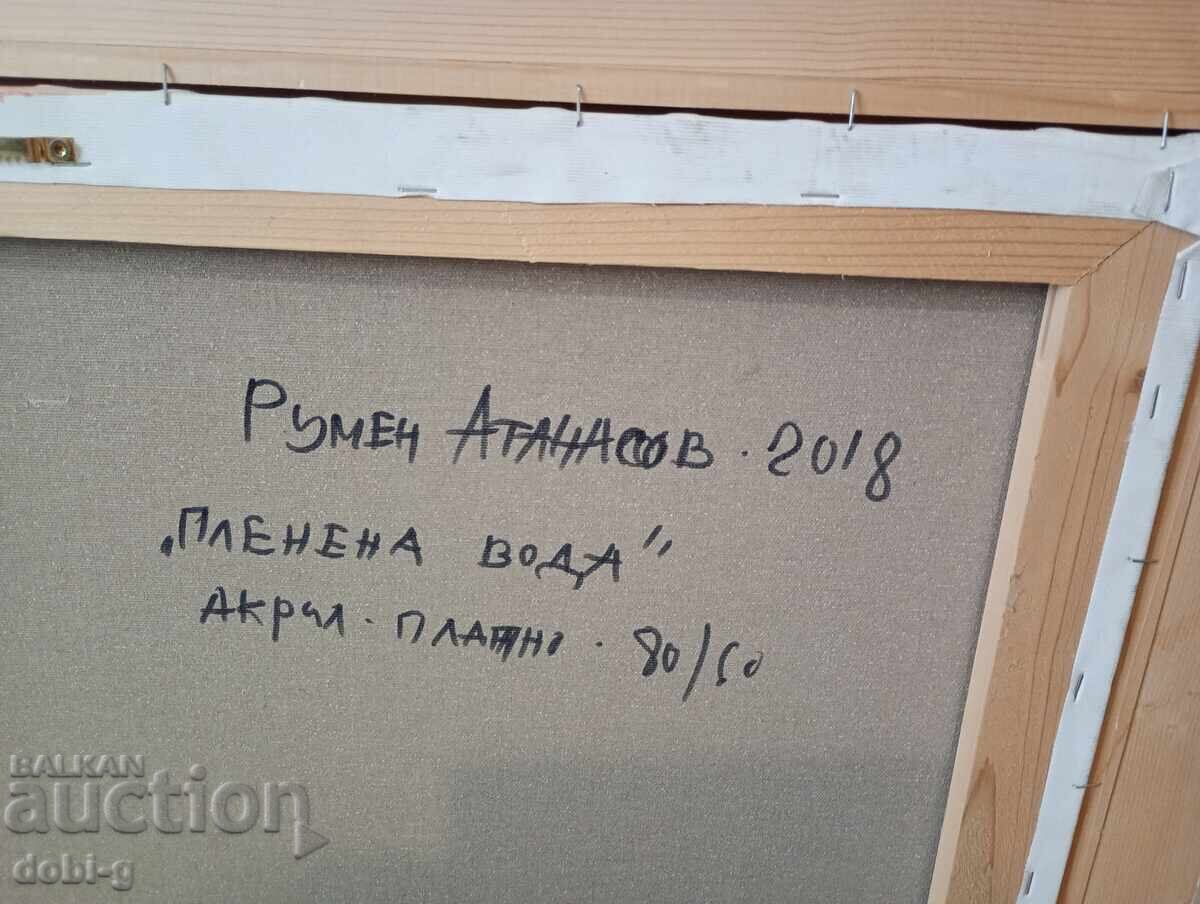 Румен Атанасов · 2018
„Пленена вода"
Акрил · платно · 80/60
BALKAN
auction
dobi-g